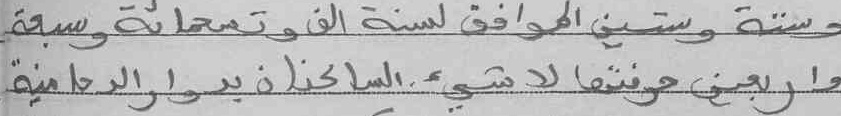 وستة وستين الموافق لسنة الف وتسعمائة وسبعة
واربعين حرفتها لا شيء. الساكنان بدوار الدحامنية